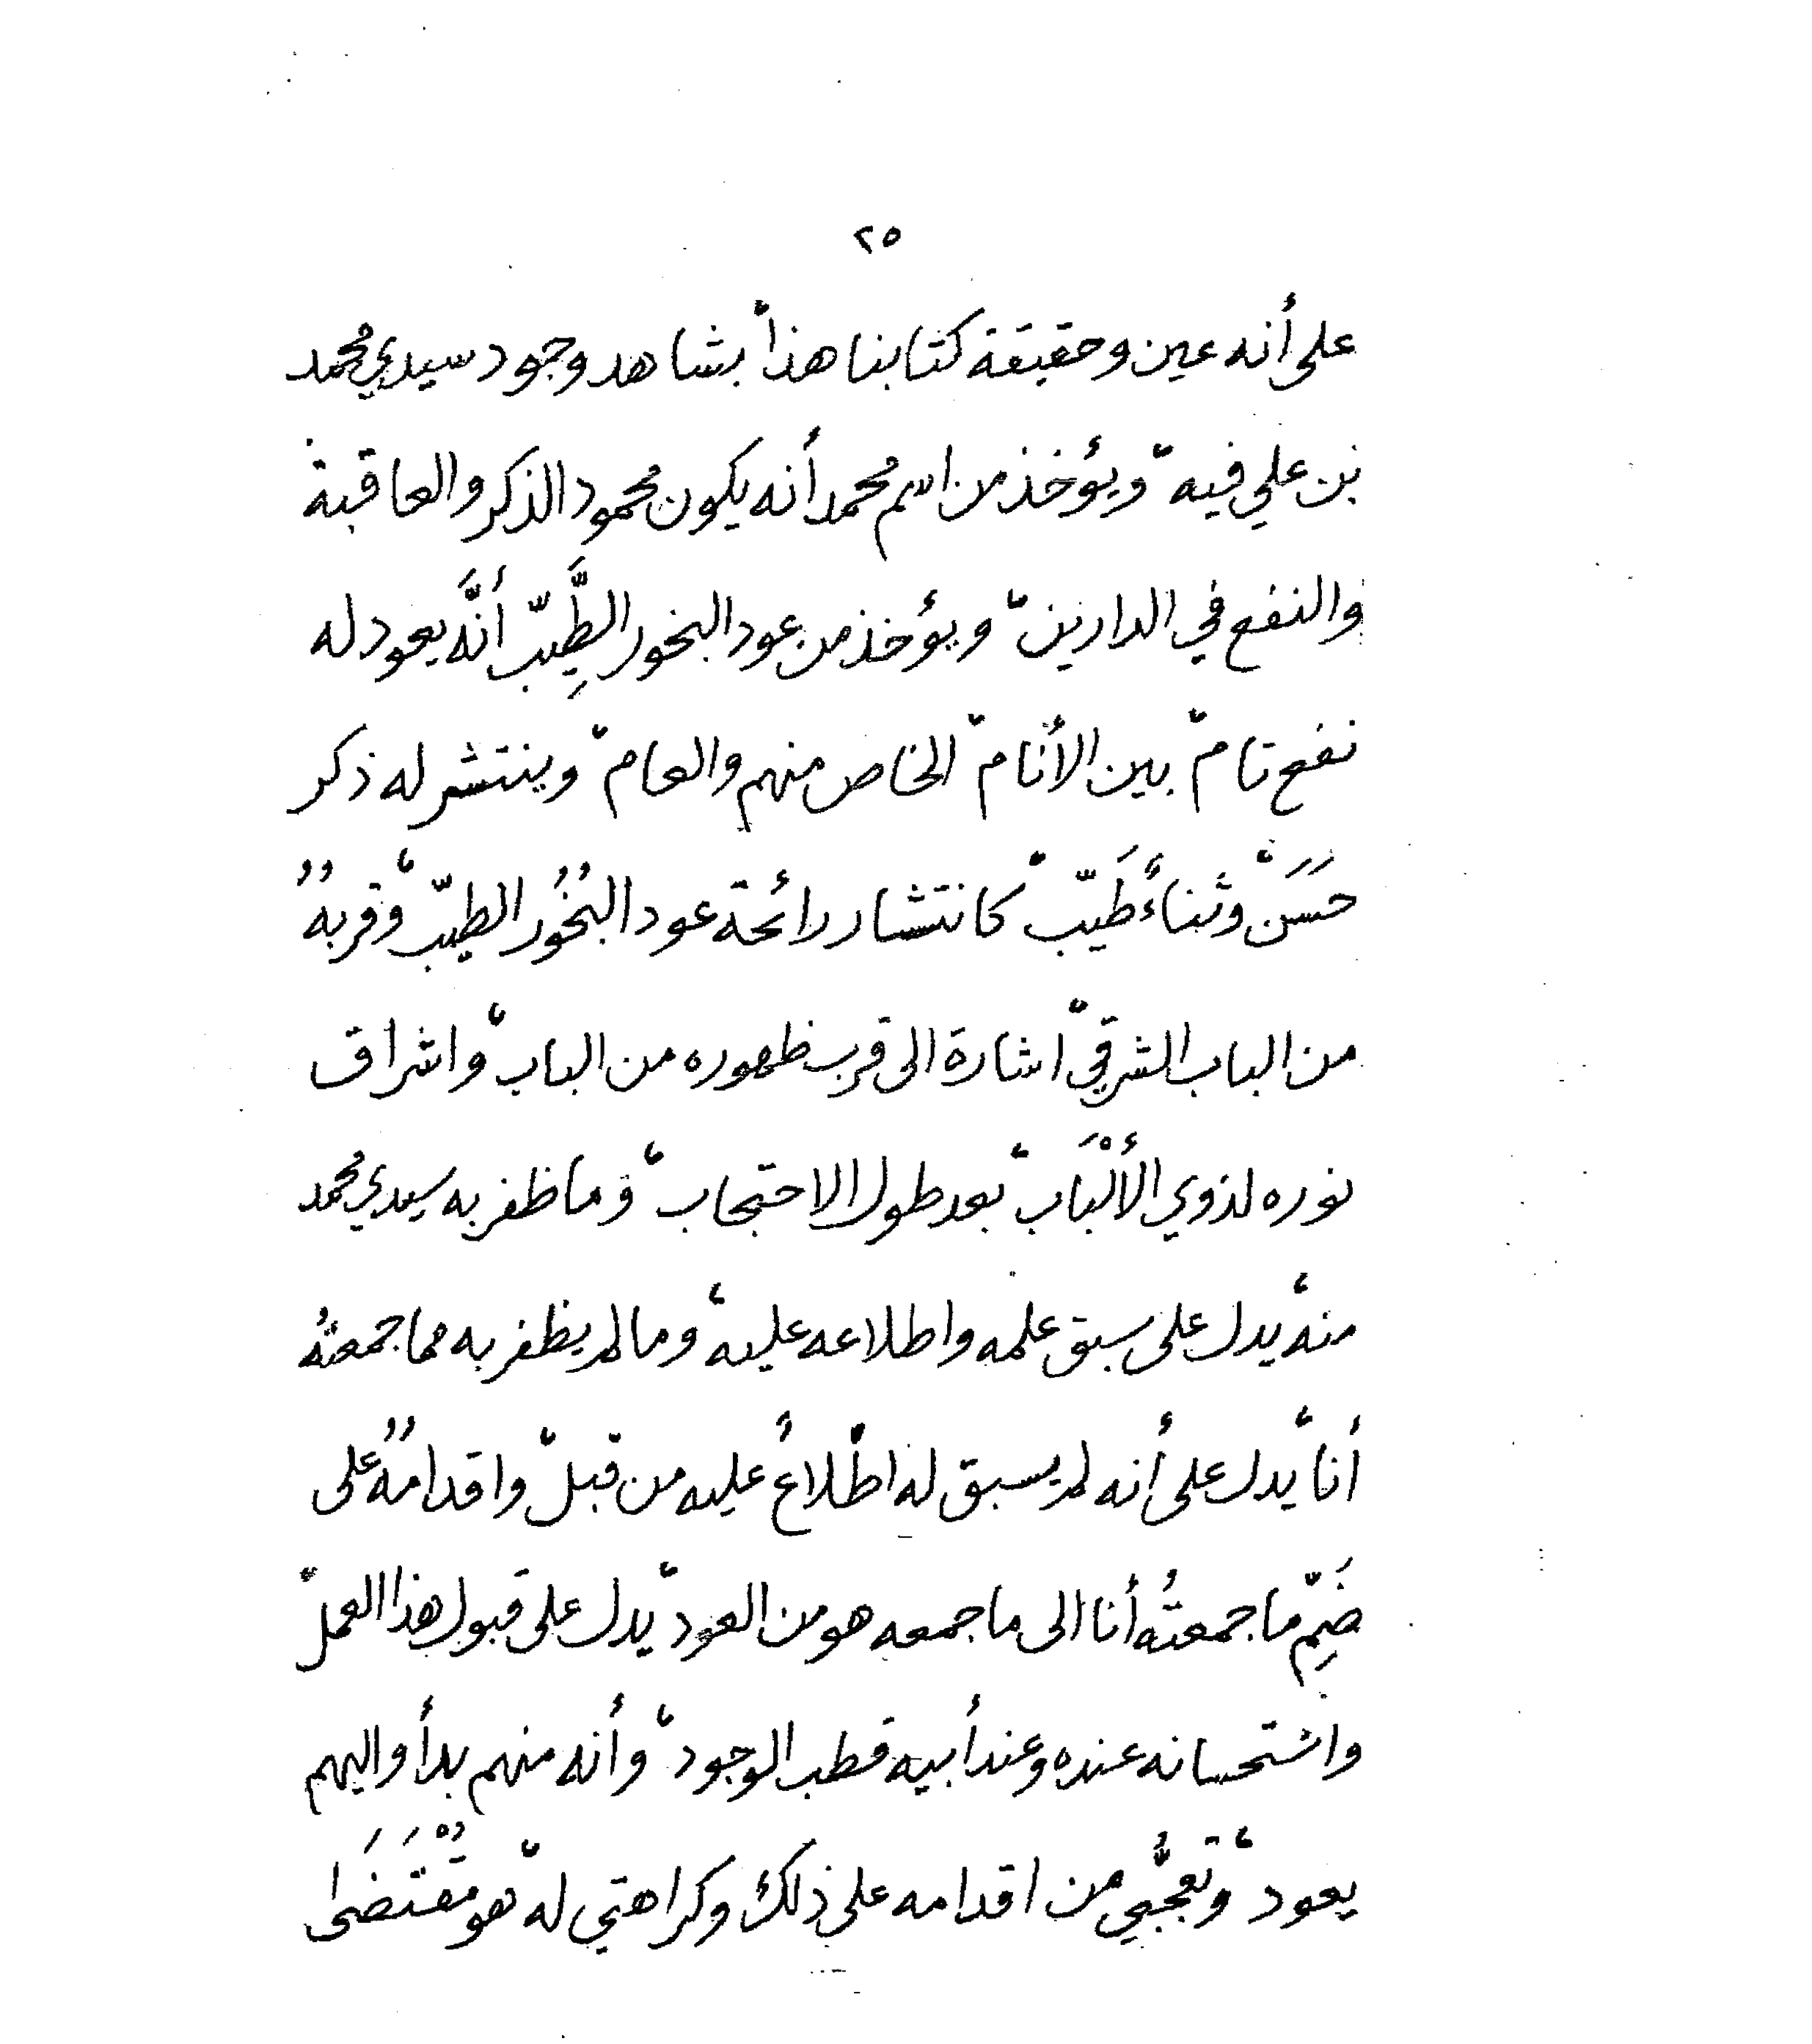 ٢٥
على أنه عين وحقيقة كتابنا هذا، بشاهد وجود سيدي محمد
بن علي فيه، ويؤخذ من اسم محمد أنه يكون محمود الذكر والعاقبة
والنفع في الدارين، ويؤخذ من عود البخور الطَّيِّب أنَّه يعود له
نفع تام، بين الأنام، الخاص منهم والعام، وينتشر له ذكر
حَسَن، وثناءٌ طَيّب، كانتشار رائحة عود البُخُور الطيّب، وقربهُ
من الباب الشرقي، اشارة الى قرب ظهوره من الباب، واشراق
نوره لذوي الأَلْبَاب، بعد طول الاحتجاب، وما ظفر به سيدي محمد
منه، يدل على سبق علمه واطلاعه عليه، وما لم يظفر به مما جمعتهُ
أنا، يدل على أنه لم يسبق له اطلاعٌ عليه من قبل، واقدامُهُ على
ضَمِّ ما جمعتُه أنا الى ما جمعه هو من العود، يدل على قبول هذا العمل،
واستحسانه عنده وعند أبيه قطب الوجود، وأنه منهم بدأ واليهم
يعود، وتعجُّبي من اقدامه على ذلك وكراهتي له، هو مُقْتَضَى